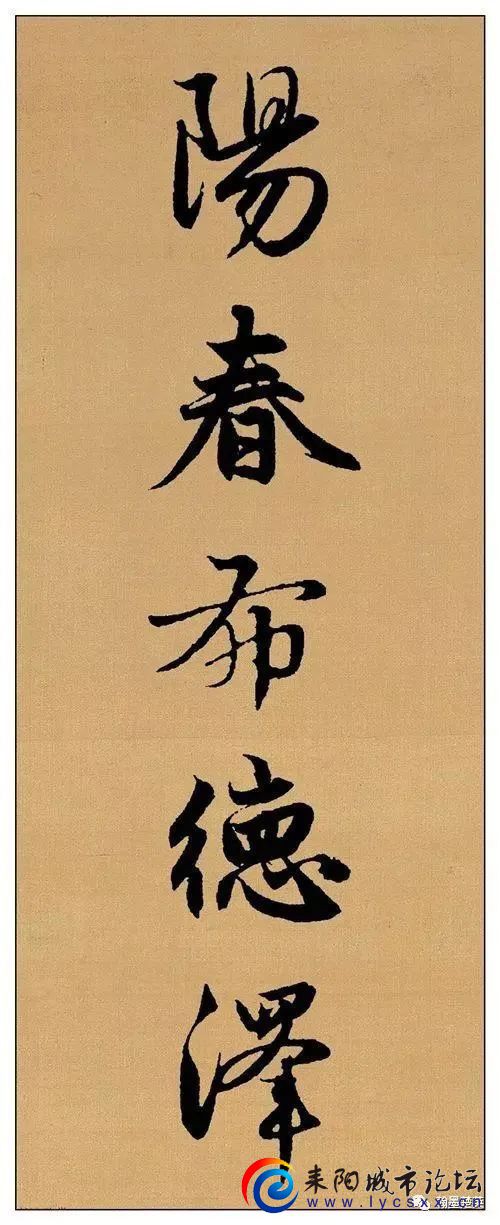 陽春布德澤
耒阳城市论坛
www.lycsxx.cn